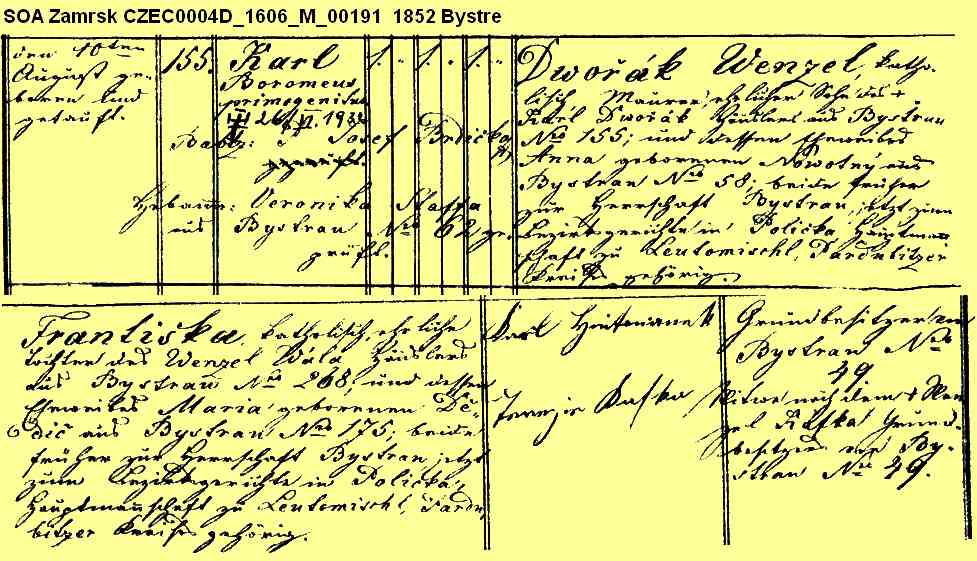 SOA Zamrsk CZEC0004D_1606_M_00191 1852 Bystre
den 10ten
August ge-
boren und
getauft.
155.
Karl
Boromeus
primogenitus
1. " 1. " 1. "
Babtz: P. Josef Brdička
geprüft.
Hebame: Veronika
aus Bystrau Nro 62 ge-
prüft.
Dwořák Wenzel, katho-
lisch, Maurer, ehelicher Sohn des +
Karl Dwořák Häuslers aus Bystrau
Nro 155; und dessen Eheweibes
Anna geborenen Nowotný aus
Bystrau Nro 58; beide früher
zur Herrschaft Bystrau, jetzt zum
Bezirksgerichte in Polička Hauptman-
schaft zu Leutomischl, Pardubitzer
Kreises gehörig.
Františka, katholisch, eheliche
Tochter des Wenzel Wála Häuslers
aus Bystrau Nro 268, und dessen
Eheweibes Maria geborenen Dě-
dič aus Bystrau Nro 175; beide
früher zur Herrschaft Bystrau jetzt
zum Bezirksgerichte in Polička,
Hauptmannschaft zu Leutomischl, Pardu-
bitzer Kreises gehörig.
Karl
Terezie Kafka
Grundbesitzer von
Bystrau Nro
49
Witwe nach dem + Wen-
zel Kafka Grund-
besitzer von By-
strau Nro 49.